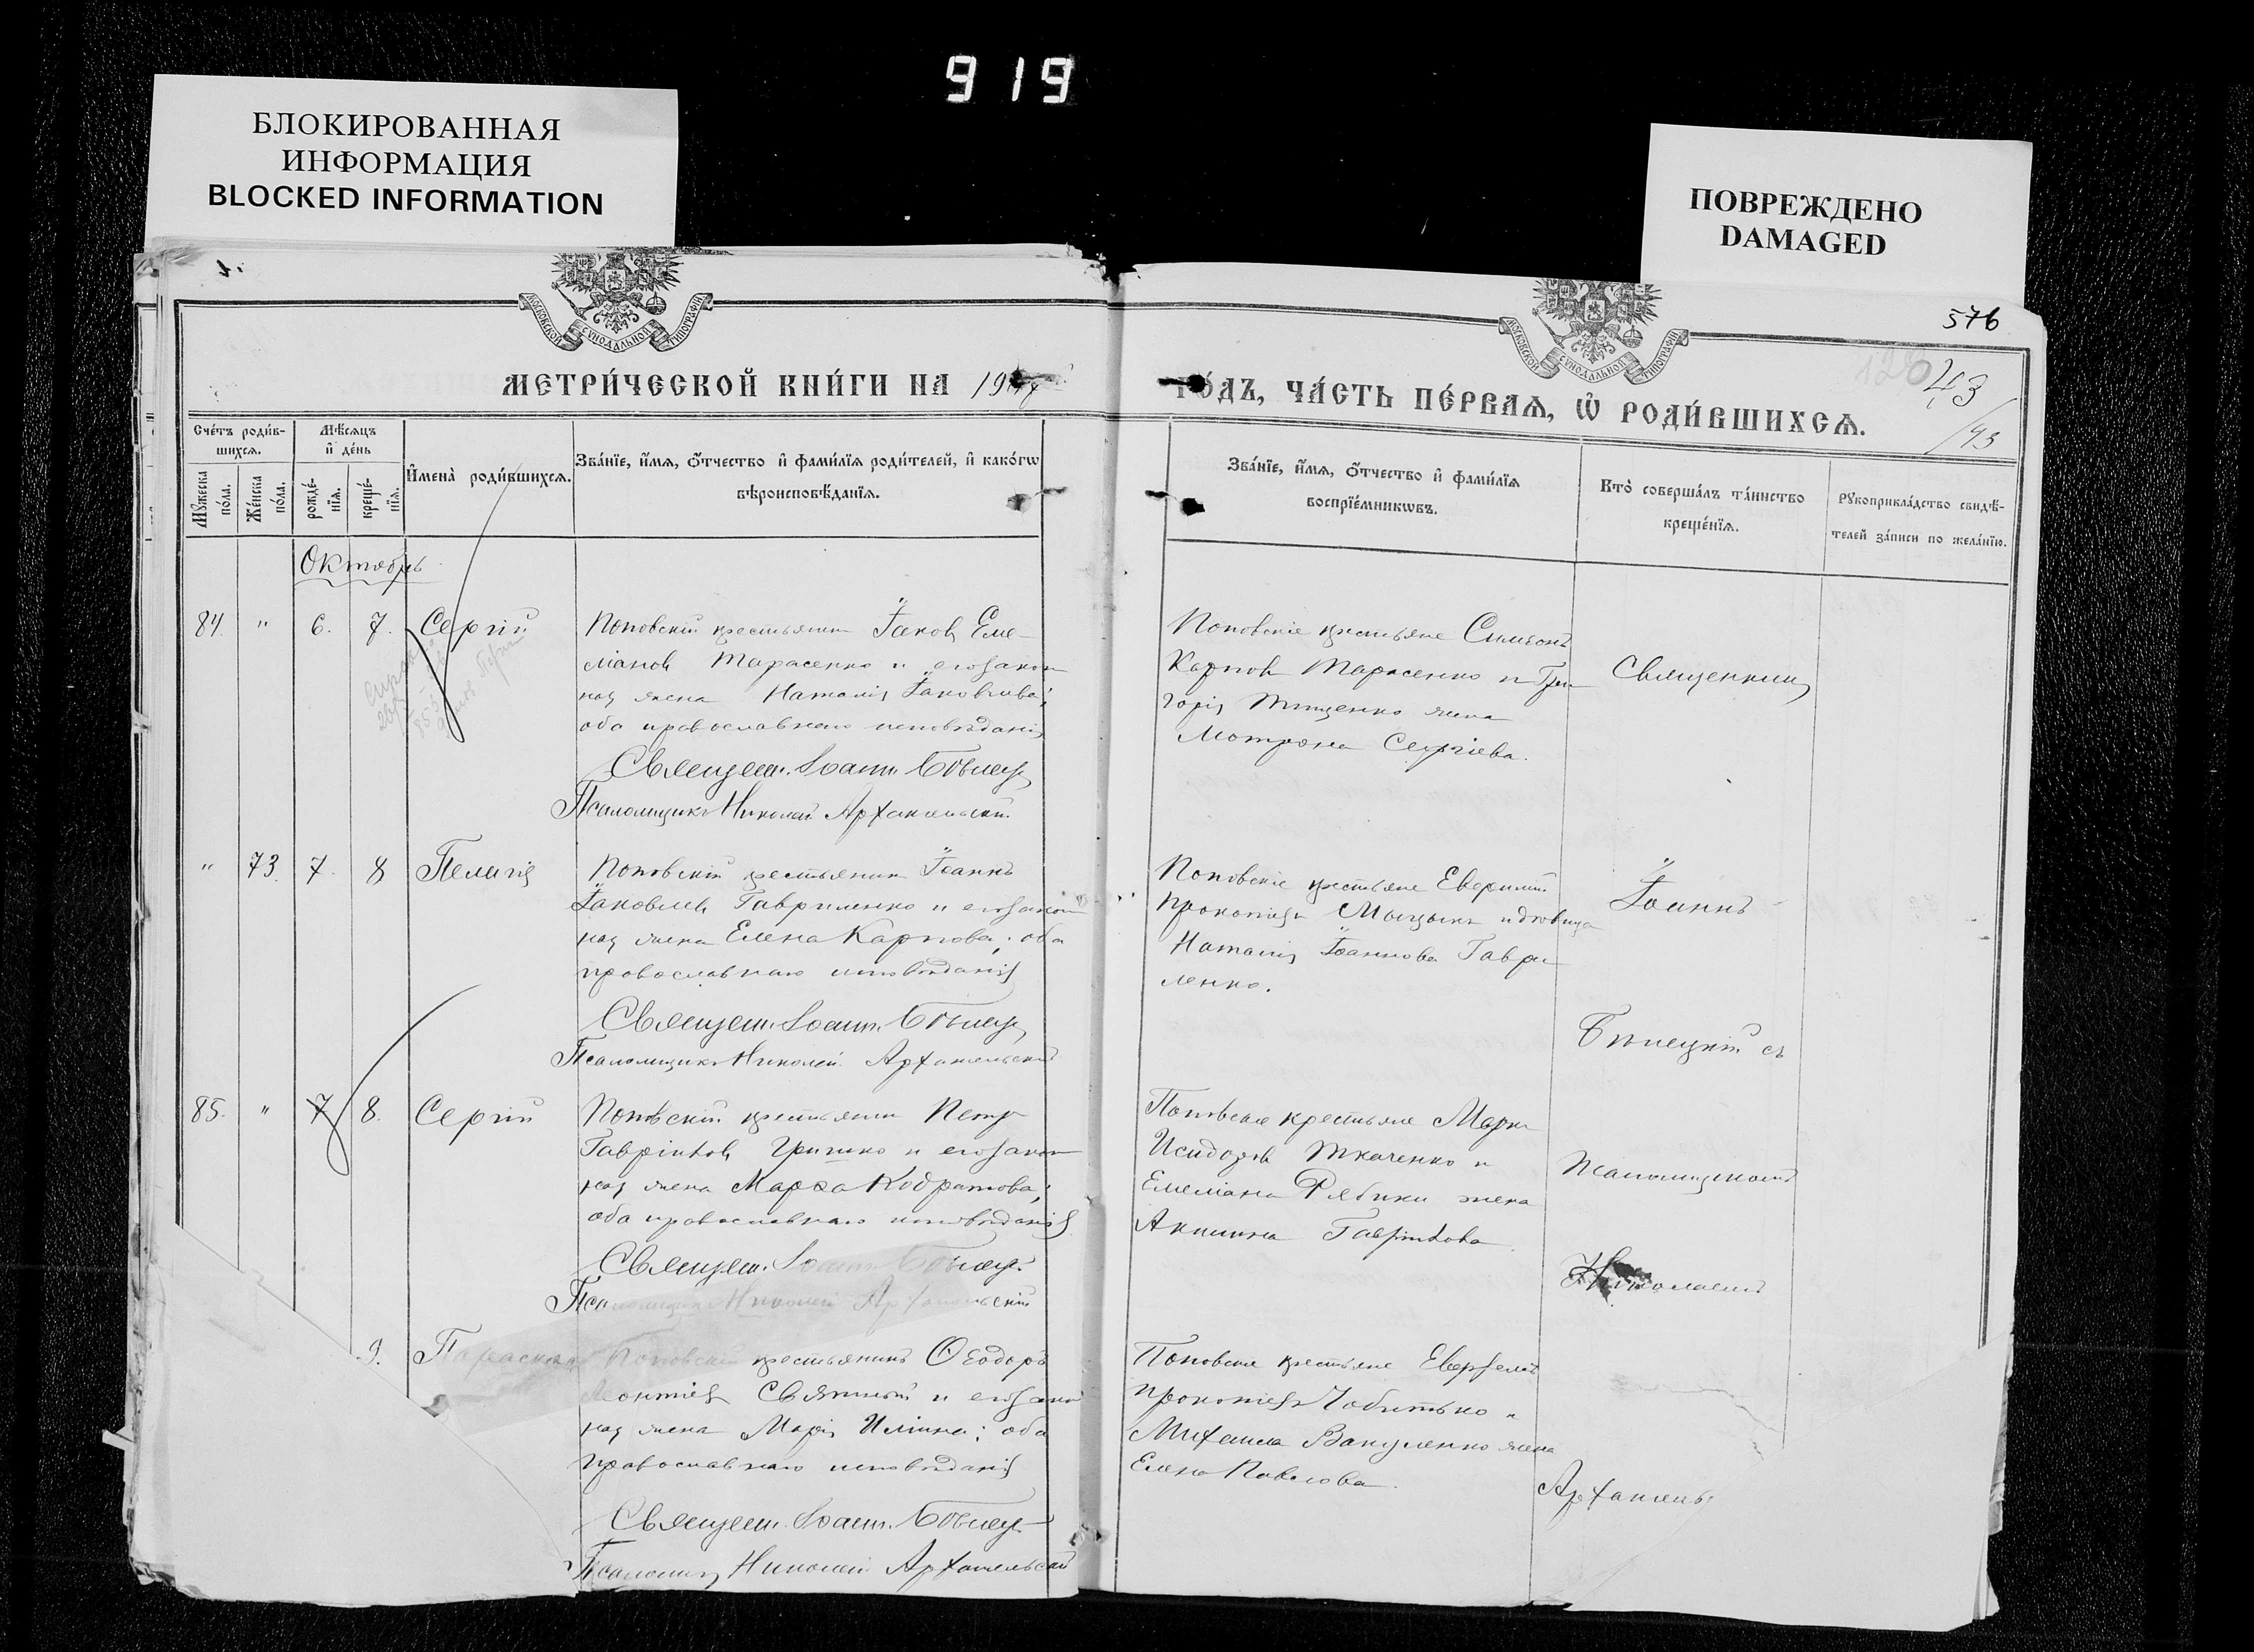 919
БЛОКИРОВАННАЯ
ИНФОРМАЦИЯ
BLOCKED INFORMATION
ПОВРЕЖДЕНО
DAMAGED
МОСКОВСКОЙ СУНОДАЛЬНОЙ ТИПОГРАФІИ
МОСКОВСКОЙ СУНОДАЛЬНОЙ ТИПОГРАФІИ
576
43
МЕТРИ́ЧЕСКОЙ КНИ́ГИ НА
ГО́ДЪ, ЧА́СТЬ ПЕ́РВАѦ, Ѡ РОДИ́ВШИХСѦ.
Сче́тъ роди́в-
шихсѧ.
Мꙋжеска по́ла.
Же́нска по́ла.
Мѣ́сѧцъ
и де́нь
рожде́-нїѧ.
креще́-нїѧ.
Имена̀ роди́вшихсѧ.
Зва́нїе, и́мѧ, ѻ́тчество и фами́лїѧ роди́телей, и како́гѡ
вѣроисповѣ́данїѧ.
Зва́нїе, и́мѧ, ѻ́тчество и фами́лїѧ
воспрїе́мникѡвъ.
Кто̀ соверша́лъ та́инство
креще́нїѧ.
Рꙋкоприкла́дство свидѣ́-
телей за́писи по жела́нїю.
Октябрь
84. " 6. 7. Сергій
Поповскій крестьянин Іаков Еме-
ліанов Тарасенко и его закон
ная жена Наталія Іаковлева;
оба православнаго исповѣданія
Священ. Іоанн Бѣлец.
Псаломщикъ Николай Архангельскій
Поповскіе крестьяне Симеонъ
Карпов Тарасенко и Гри
горія Тищенко жена
Мотрона Сергіева.
Священник
" 73. 7. 8 Пелагія
Поповскій крестьянин Іоаннъ
Іаковлев Гавриленко и его закон
ная жена Елена Карпова; оба
православнаго исповѣданія
Священ. Іоанн. Бѣлец.
Псаломщикъ Николай Архангельскій
Поповскіе крестьяне
Прокопіев и вдовица
Наталія Іоаннова Гаври
ленко.
Іоаннъ
Бѣлецкій съ
85. " 7 8. Сергій
Поповскій крестьянин Петр
Гавріилов Гришко и его закон
ная жена Марѳа Кодратова;
оба православнаго исповѣданія
Священ. Іоанн Бѣлец.
Псаломщикъ Николай Архангельскій
Поповскіе крестьяне Марк
Исидоров Ткаченко и
Емеліана Рябики жена
Акилина Гавріилова.
Псаломщикомъ
Николаемъ
9. Параскева
Поповскій крестьянинъ Ѳеодоръ
Святный и его закон
ная жена Марія Иліина; оба
православнаго исповѣданія
Священ. Іоанн. Бѣлец.
Псаломщ. Николай Архангельскій
Поповскіе крестьяне
Прокопіев Чобитько и
Михаила Вакуленко жена
Елена Павлова.
Архангель.